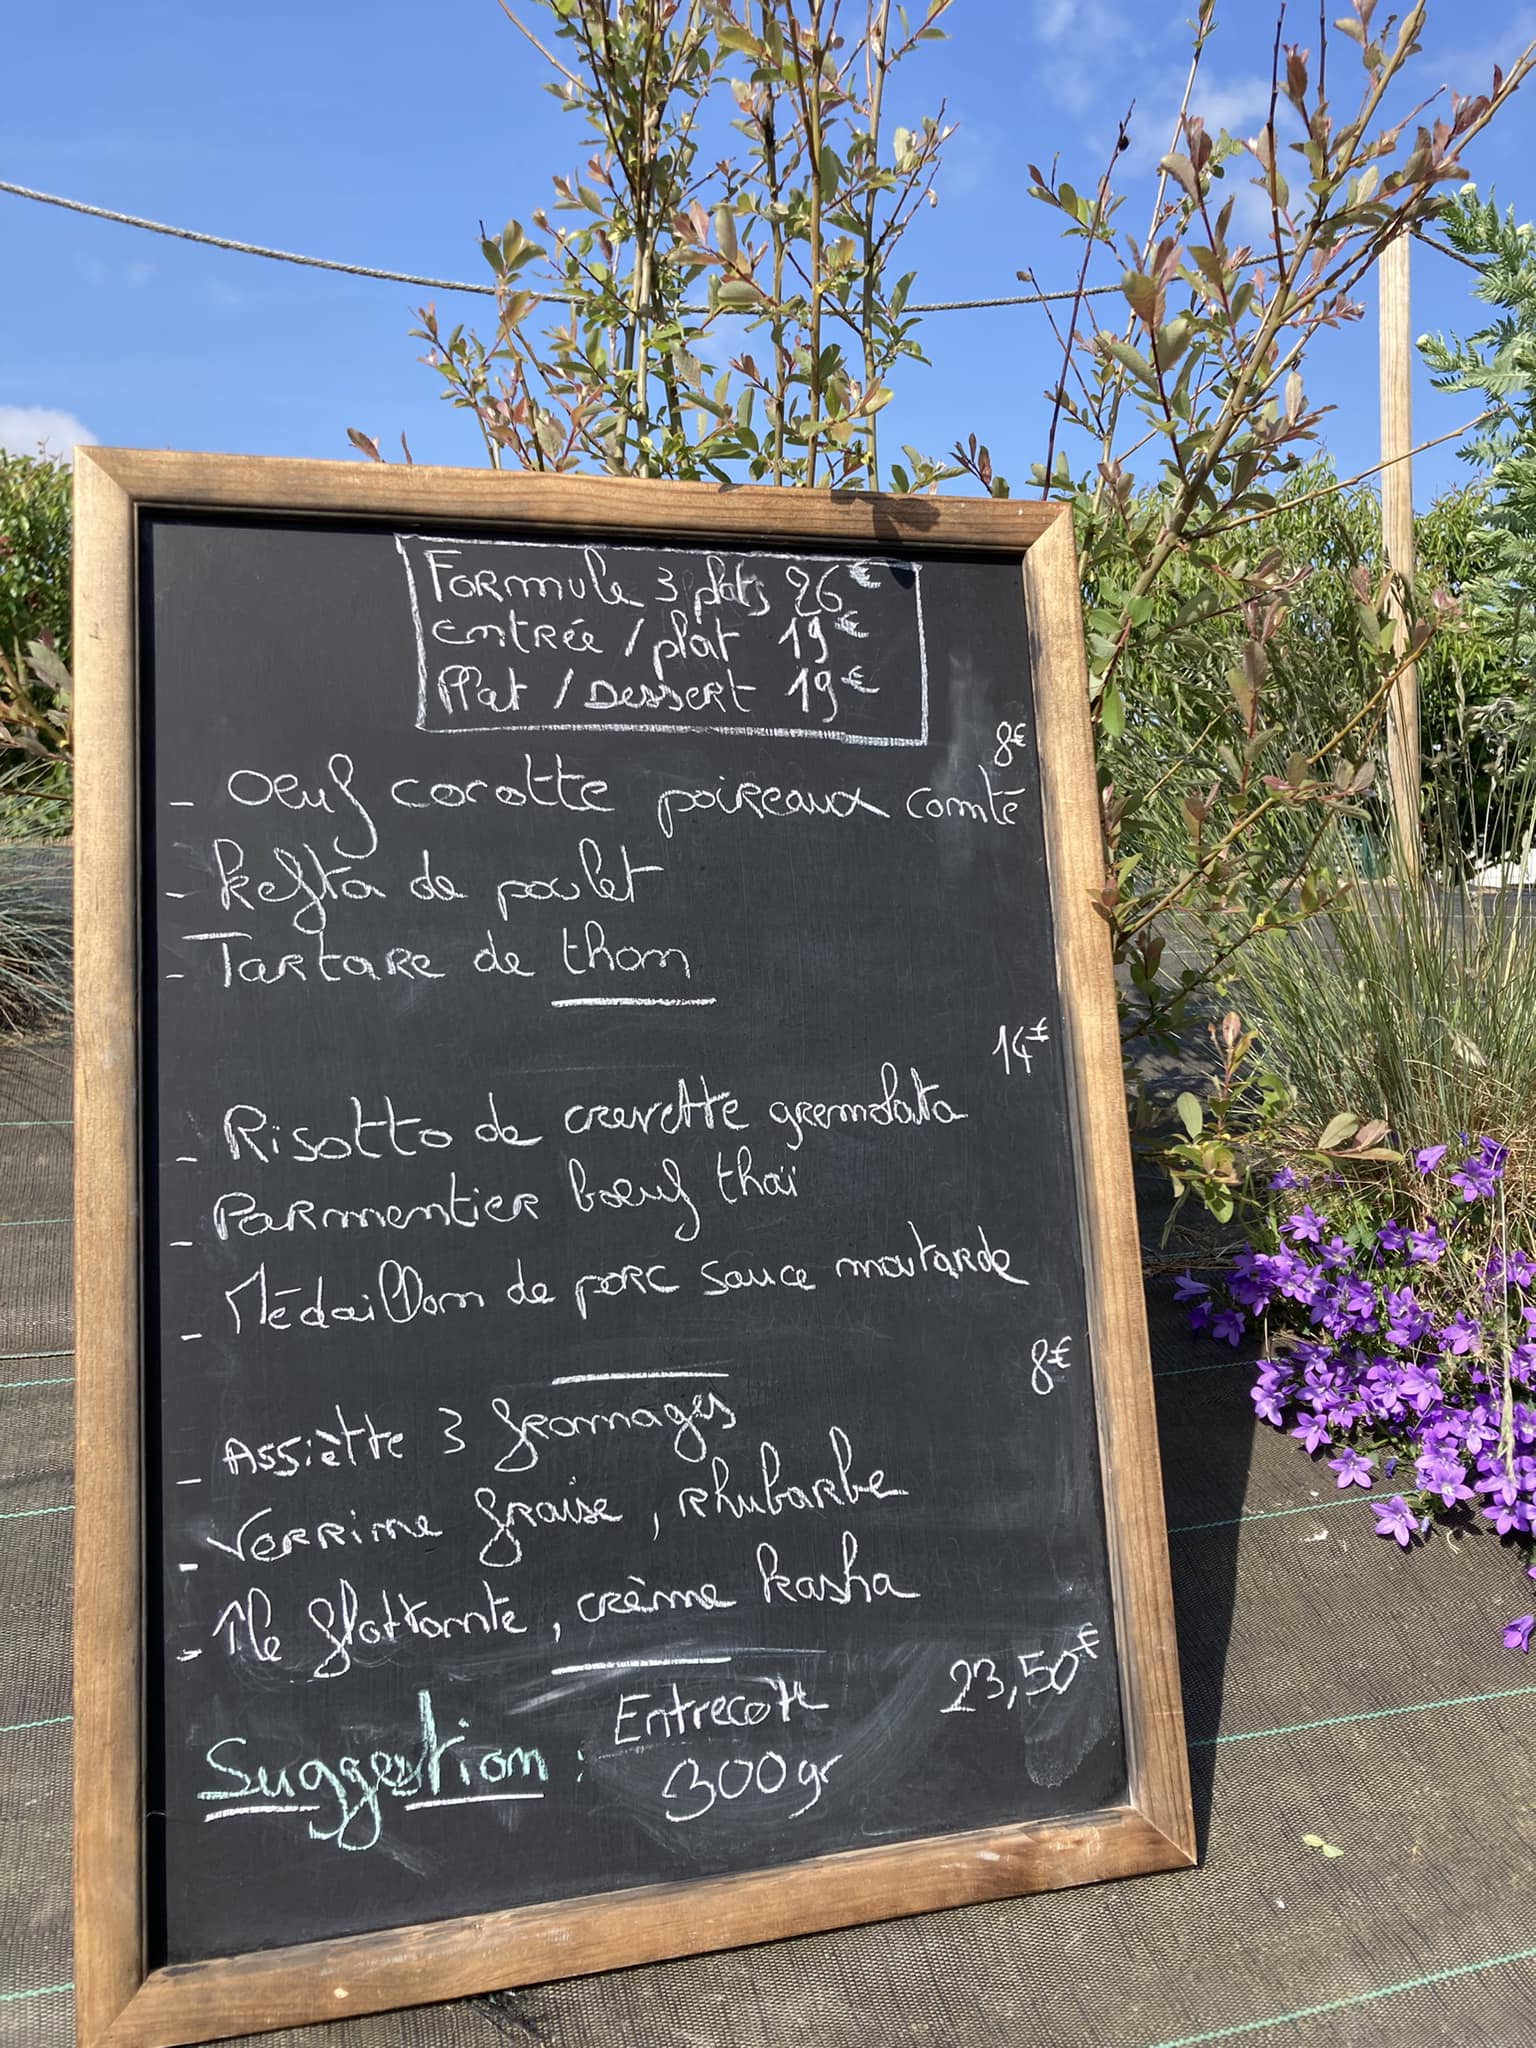 Formule 3 plats 26€
entrée / plat 19€
Plat / Dessert 19€
8€
- Oeuf cocotte poireaux comté
- kefta de poulet
- Tartare de thon
14€
- Risotto de crevette gremolata
- Parmentier bœuf thaï
- Médaillon de porc sauce moutarde
8€
- Assiètte 3 fromages
- Verrine fraise, rhubarbe
- Ile flottante, crème kasha
Suggestion : Entrecôte 23,50€
300gr